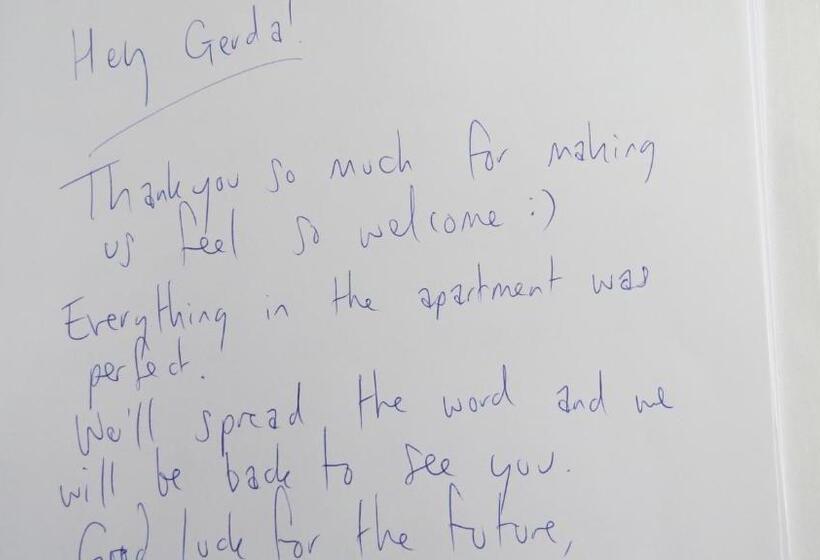 Hey Gerda!
Thank you so much for making
us feel so welcome :)
Everything in the apartment was
perfect.
We'll spread the word and we
will be back to see you.
Good luck for the future,